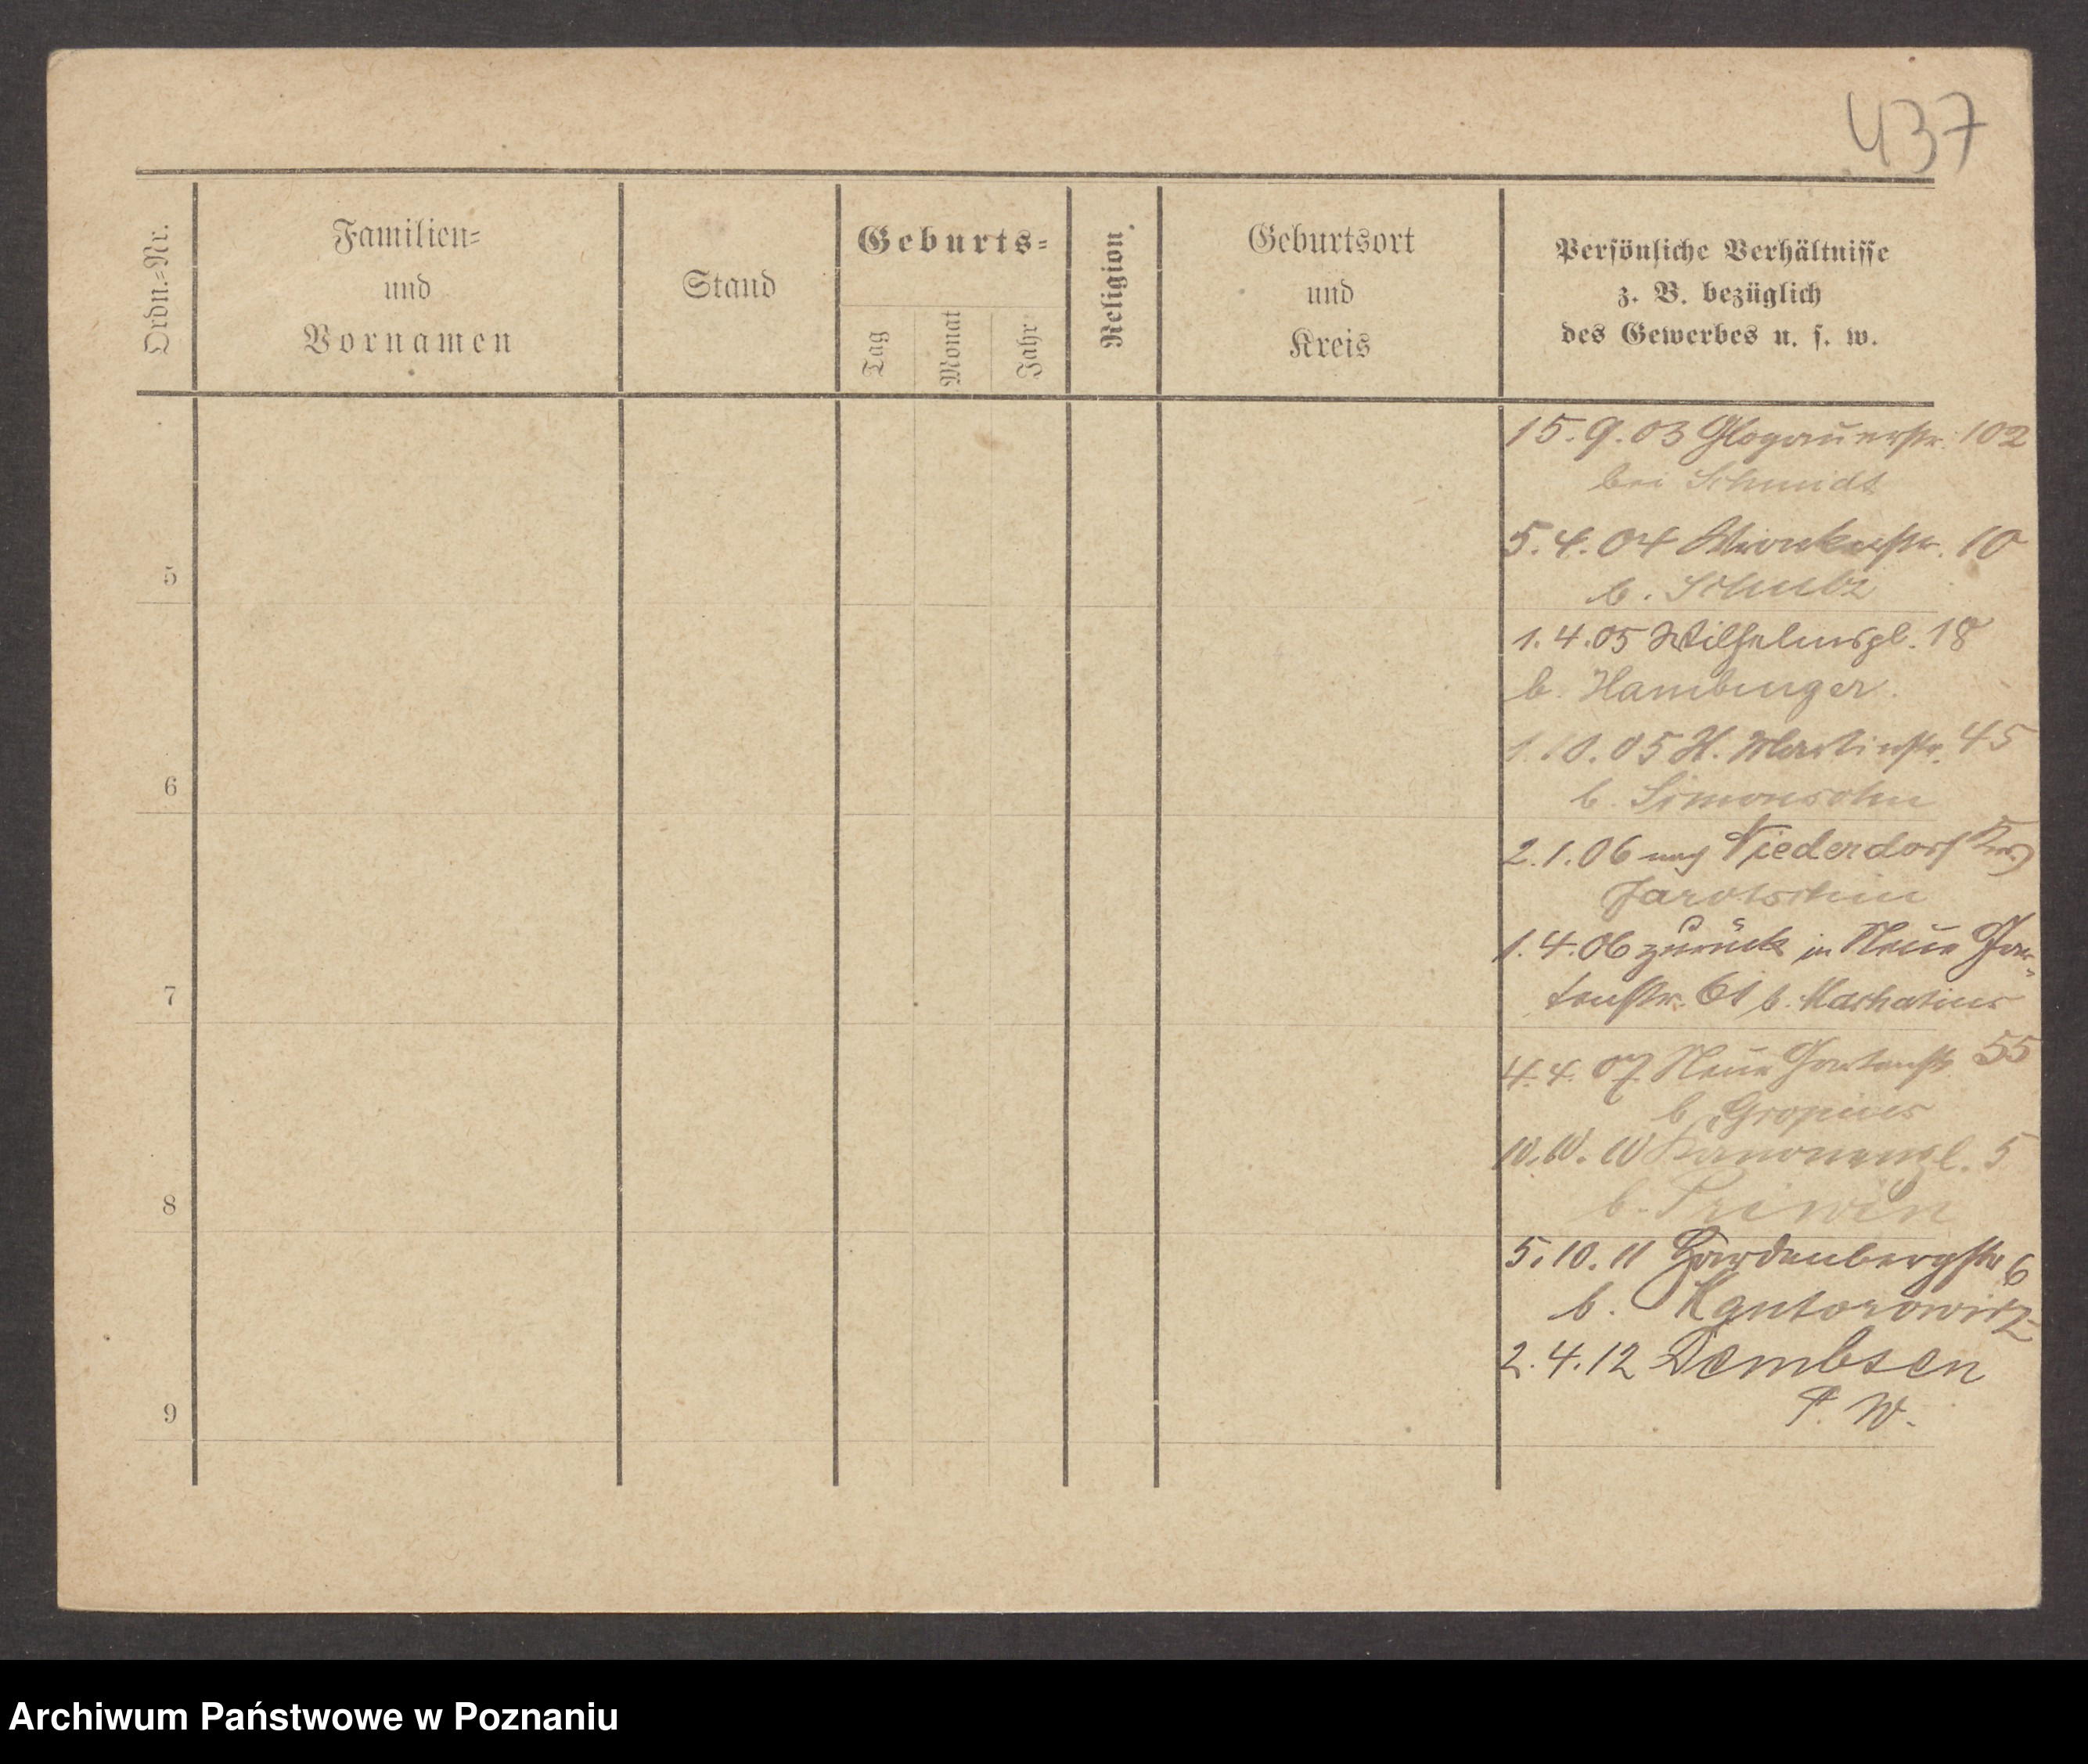 437
Ordn.=Nr.
Familien=
und
Vornamen
Stand
Geburts=
Tag
Monat
Jahr
Religion.
Geburtsort
und
Kreis
Persönliche Verhältnisse
z. B. bezüglich
des Gewerbes u. s. w.
15.9.03 Glogauerstr. 102
bei Schmidt
5.4.04 Wronkerstr. 10
5
b. Schulz
1.4.05 Wilhelmspl. 18
b. Hamburger.
1.10.05 St. Martinstr. 45
6
b. Simonsohn
2.1.06 nach Niederdorf Krs
Jarotschin
1.4.06 zurück in Neue Gar-
7
tenstr. 61 b.
4.4.07 Neue Gartenstr 55
b. Gropius
10.10.10 Kanonenpl. 5
8
b. Priwin
5.10.11 Hardenbergstr 6
b. Kantorowicz
2.4.12 Dembsen
P. W.
9
Archiwum Państwowe w Poznaniu